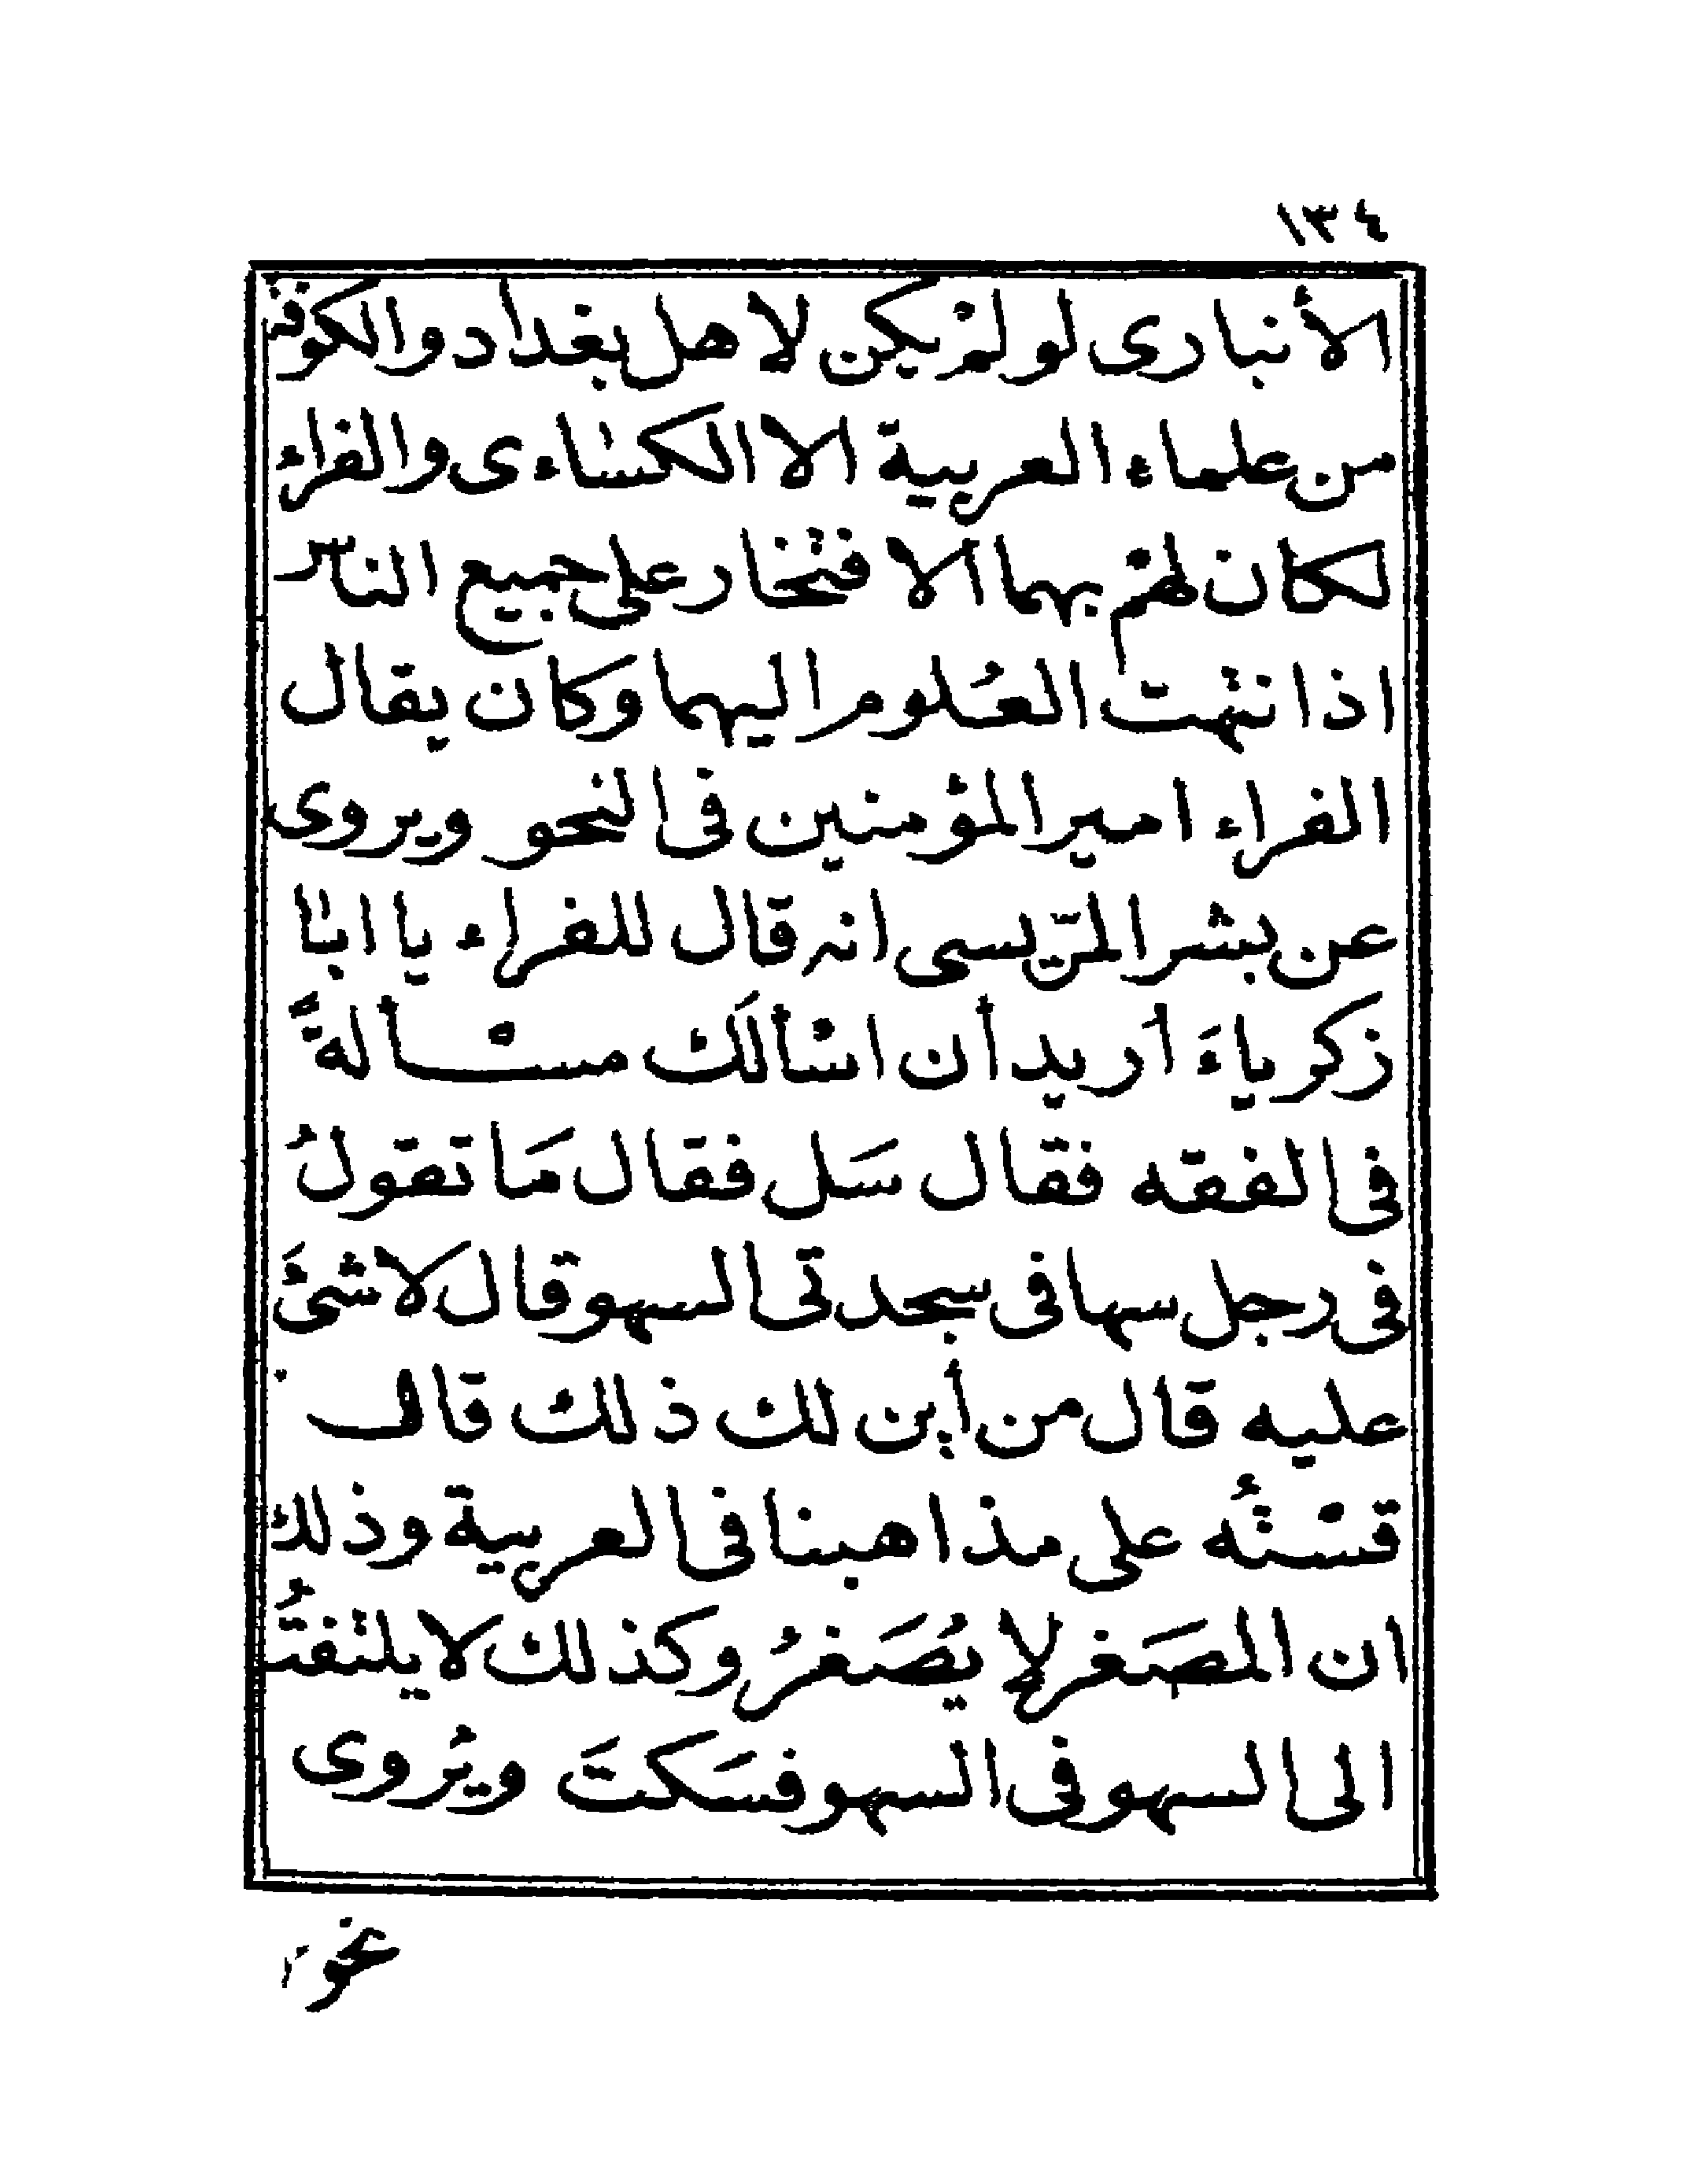 ١٣٤
الأنبارى لو لمْ يكن لاهل بغداد والكوفة
من علماء العربية الا الكسَاءى والفراء
لكان لهُمْ بهما الافتخار على جميع الناس
اذ انتهت العُلوم اليهما وكان يقال
الفراء امير المؤمنين فى النحو ويروى
عن بشر المرّيسى انه قال للفراء يا ابَا
زكرياءَ اُريد أن اسْألَك مسْألةً
فى الفقه فقال سَل فقال مَا تقولُ
فى رجل سها فى سجدتى السهو قال لا شئَ
عليه قال من أين لك ذلك قال
قسْتُه على مذاهبنا فى العربية وذلك
ان المصَغر لا يُصَغرُ وكذلك لا يلتفتُ
الى السهو فى السهو فسَكتَ ويُروى